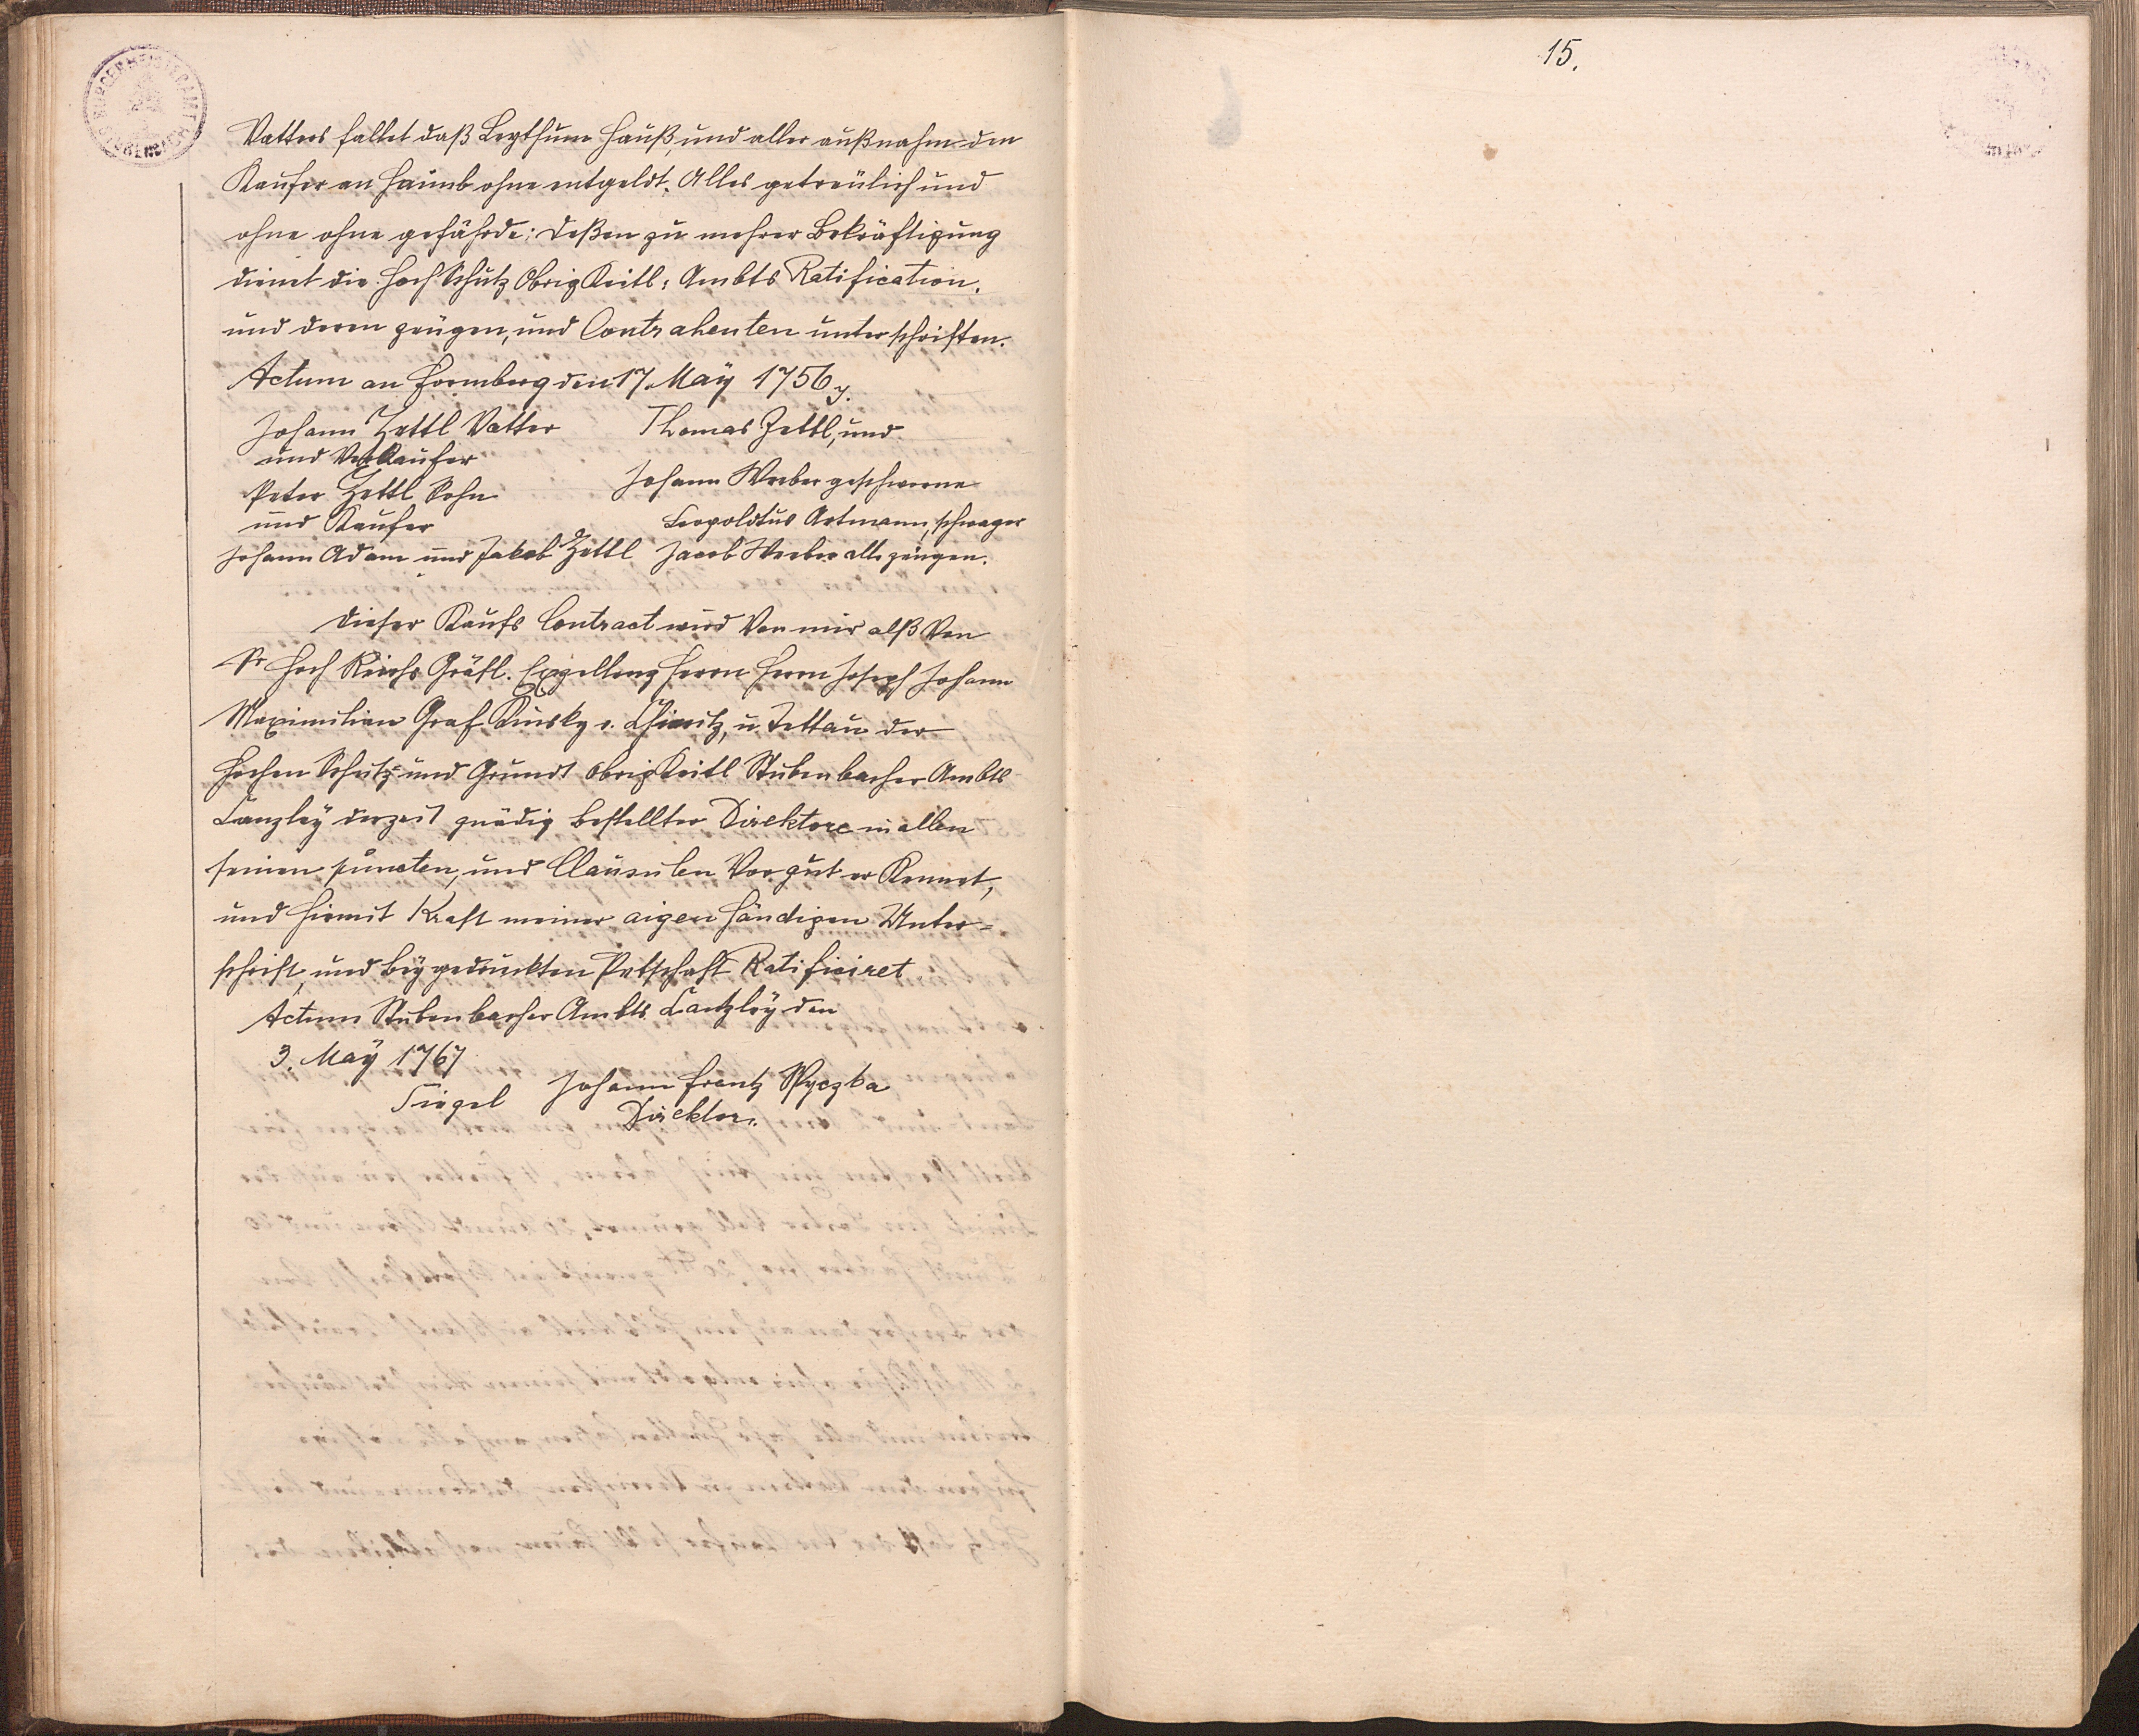 15.
BÜRGERMEISTERAMT
Vatters fallet daß Leythum Hauß, und aller außnahm den
Kaufer an Haimb ohne entgeldt. Alles getreülich und
ohne ohne gefährde: deßen zu mehrer Bekräftigung
dienet die Hoch Schutz Obrig Keitl: Ambts Ratification.
und deren zeügen, und Contrahenten unterschriften.
Actum an Hermberg den 17. Maÿ 1756
Johann Zettl Vatter
und Verkaufer
Peter Zettl Sohn
und Kaufer
Johann Adam und Jakob Zettl
Thomas Zettl, und
Johann Weeber geschworne
Leopoldtus Artmann, schwager
Jacob Weeber als zeügen.
Dieser Kaufs Contract wird Von mir alß Von
Sr Hoch Reichs Gräfl. Exzellenz Herrn Herrn Joseph Johann
Maximilian Graf Kinsky v. Chinitz, u. Tettau der
Hochen Schutz und Grundt obrigKeitl Stubenbacher Ambts
Canzleÿ derzeit gnädig bestellter Direktore in allen
seinen puncten, und Clausulen Vor gut er Kennet,
und hiemit Kraft meiner aigen händigen Unter=
schrift, und beÿ gedruckten Petschaft Ratificiret
Actum Stubenbacher Ambts Cantzleÿ den
3. Maÿ 1767
Siegel Johann Frantz Spyczka
Direktor.